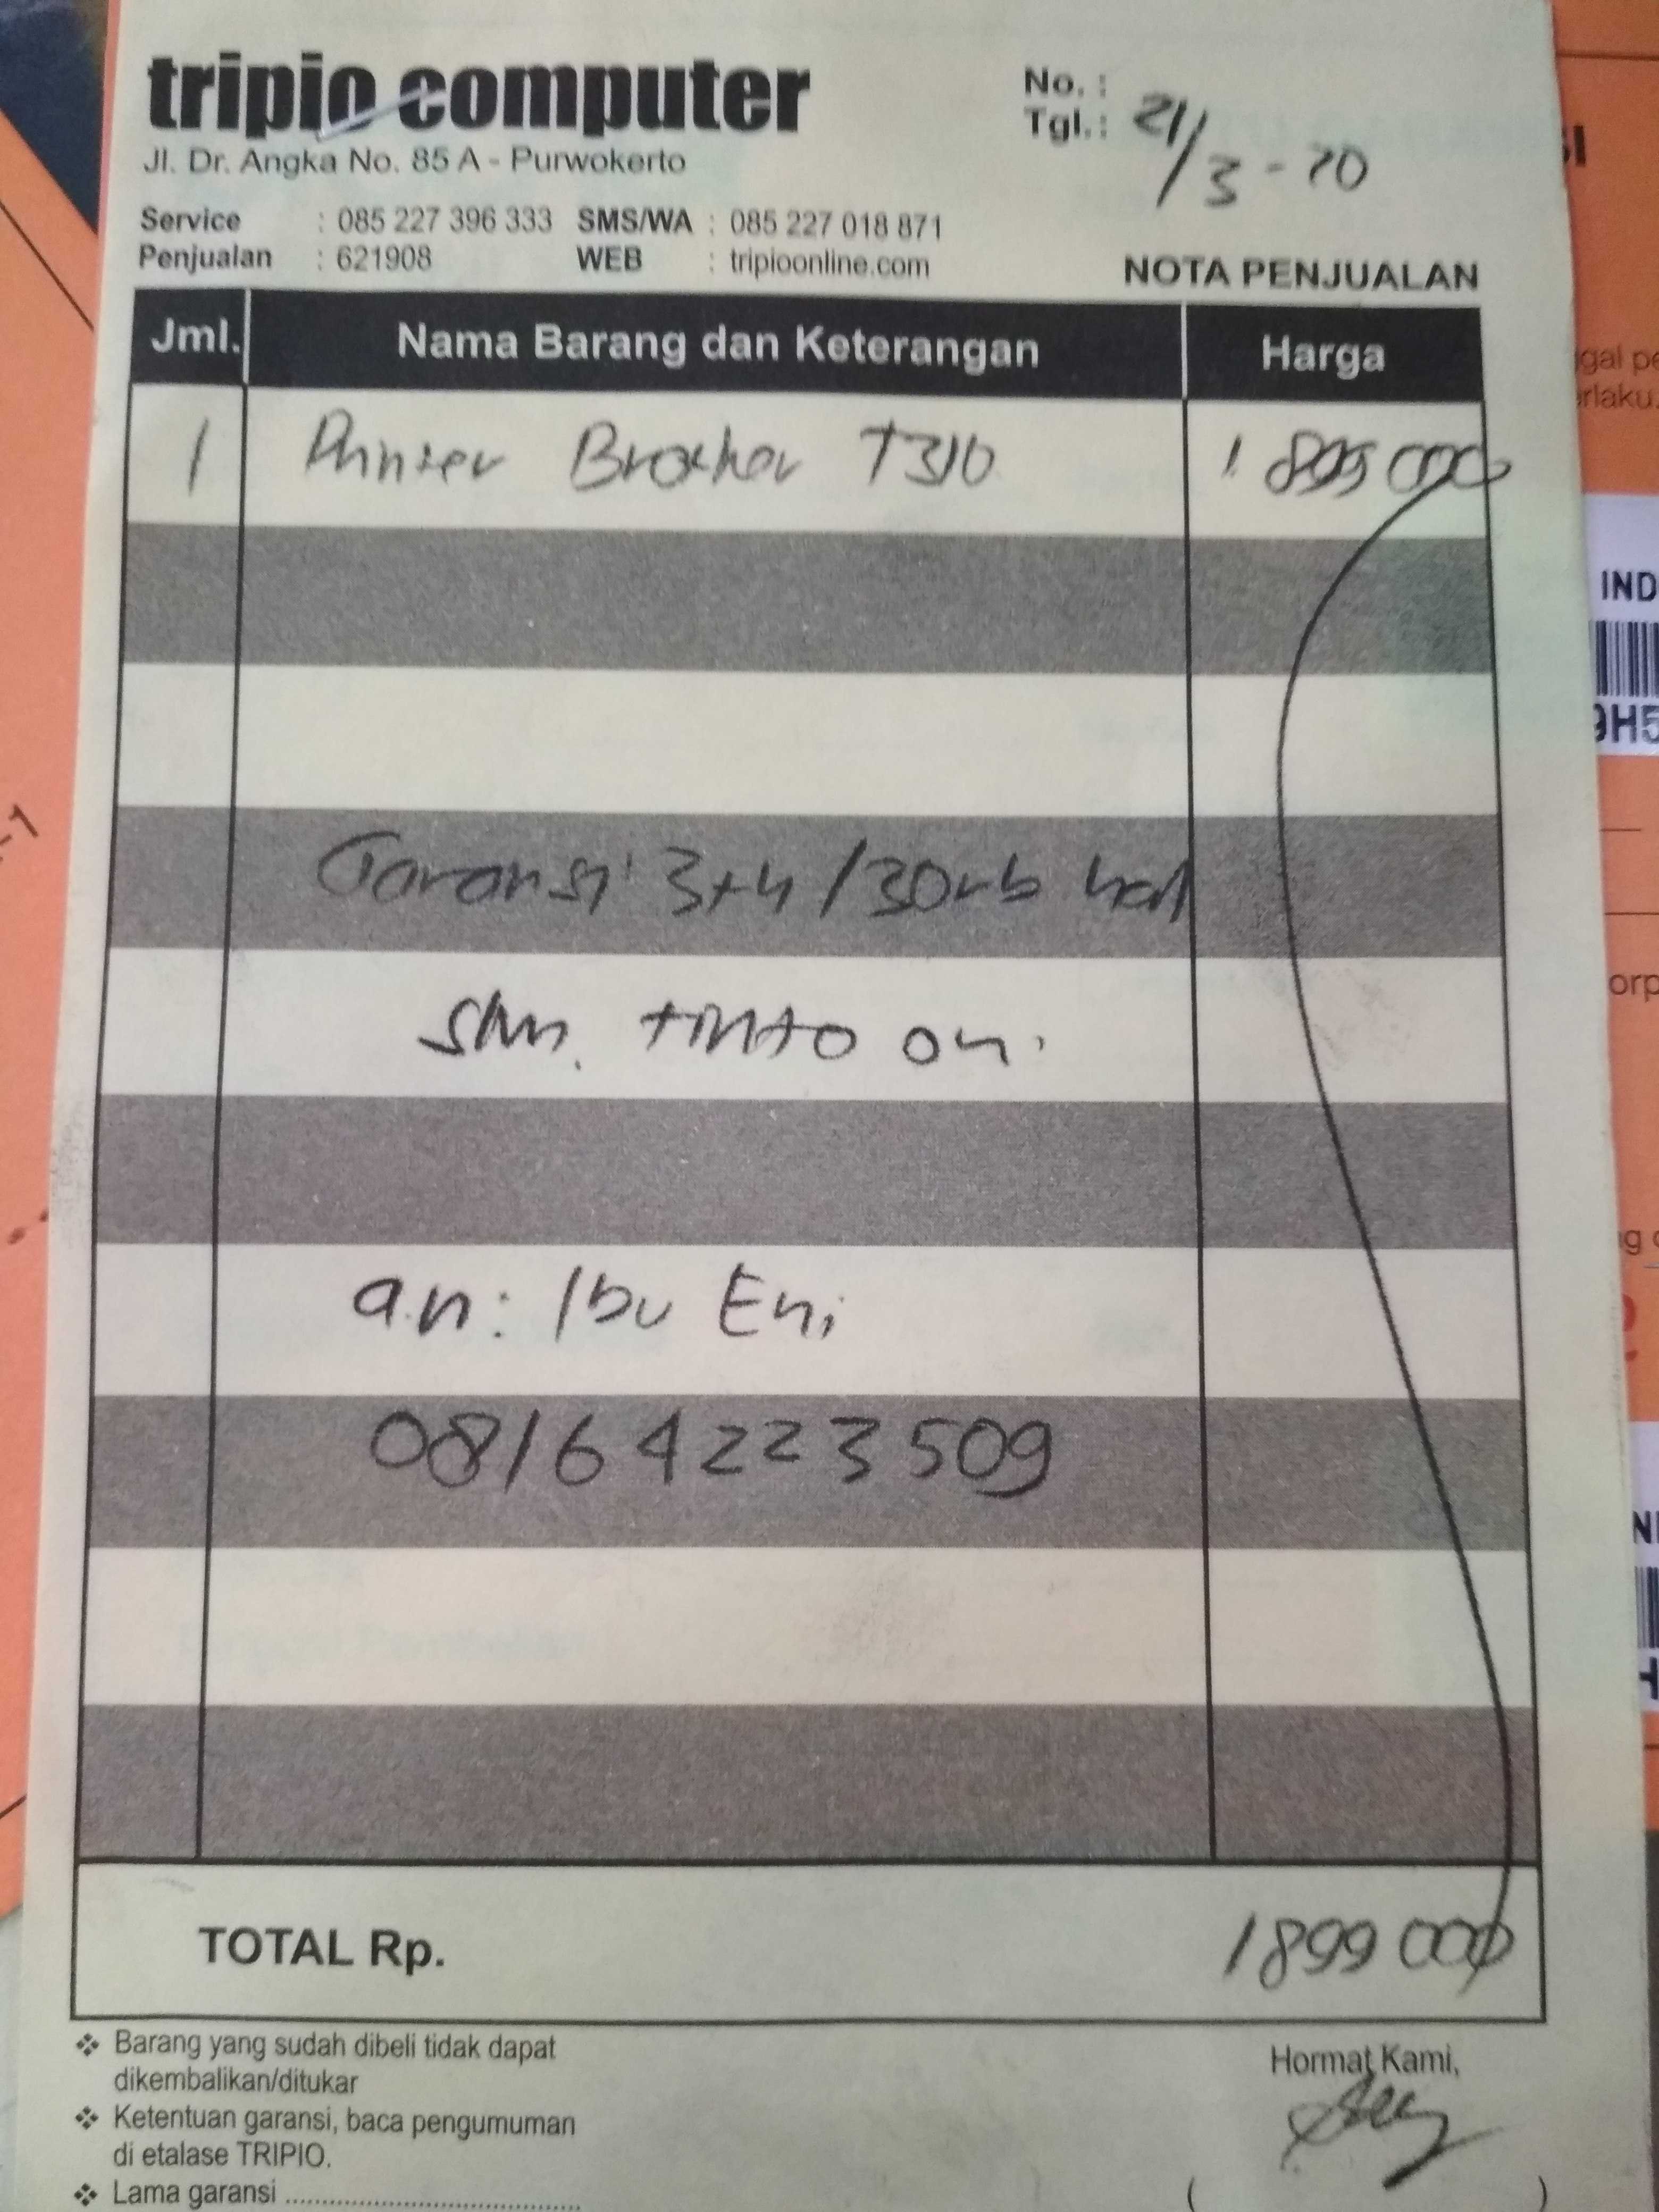 tripio computer
Jl. Dr. Angka No. 85 A - Purwokerto
Service : 085 227 396 333 SMS/WA : 085 227 018 871
Penjualan : 621908 WEB : tripioonline.com
No. :
Tgl. : 21/3-20
NOTA PENJUALAN
Jml. Nama Barang dan Keterangan Harga
1 Printer Brother T310 1.899 000
Garansi 3th/30rb hal
tinta ori.
a.n: Ibu Eni
08164223509
TOTAL Rp. 1899 000
❖ Barang yang sudah dibeli tidak dapat
dikembalikan/ditukar
❖ Ketentuan garansi, baca pengumuman
di etalase TRIPIO.
❖ Lama garansi ........................................
Hormat Kami,
( )
SI
gal pe
rlaku.
IND
9H5
orp
-1